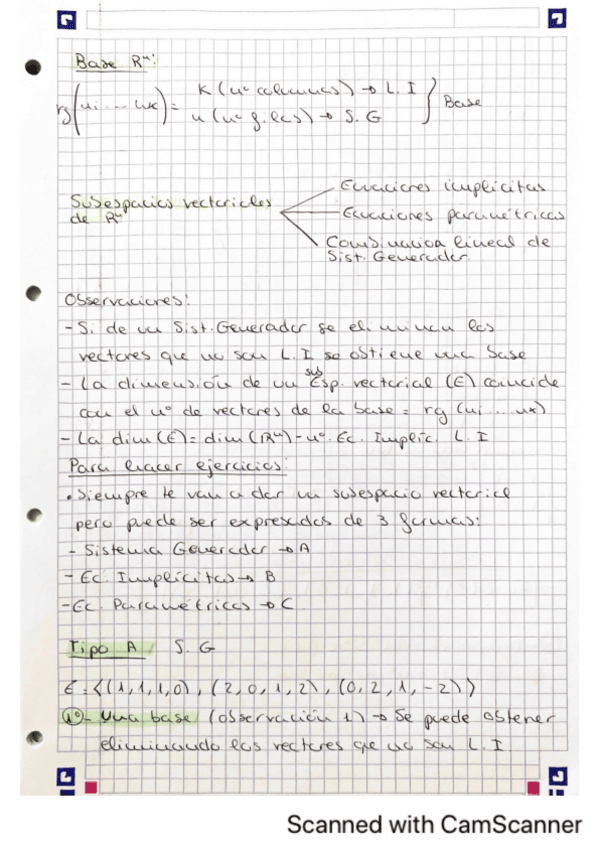 Base Rⁿ:
rg(ui ... uk) = K (nº columnas) → L.I
n (nº filas) → S.G } Base
Subespacios vectoriales
de Rⁿ
Ecuaciones implícitas
Ecuaciones paramétricas
Combinación lineal de
Sist. Generador.
Observaciones:
- Si de un Sist. Generador se eliminan los
vectores que no son L.I se obtiene una base
- La dimensión de un sub Esp. vectorial (E) coincide
con el nº de vectores de la base = rg (ui ... uk)
- La dim (E) = dim (Rⁿ) - nº. Ec. Implíc. L.I
Para hacer ejercicios:
• Siempre te van a dar un subespacio vectorial
pero puede ser expresados de 3 formas:
- Sistema Generador → A
- Ec. Implícitas → B
- Ec. Paramétricas → C
Tipo A / S.G
E: <(1,1,1,0), (2,0,1,2), (0,2,1,-2)>
1º- Una base (observación 1) → Se puede obtener
eliminando los vectores que no son L.I
Scanned with CamScanner